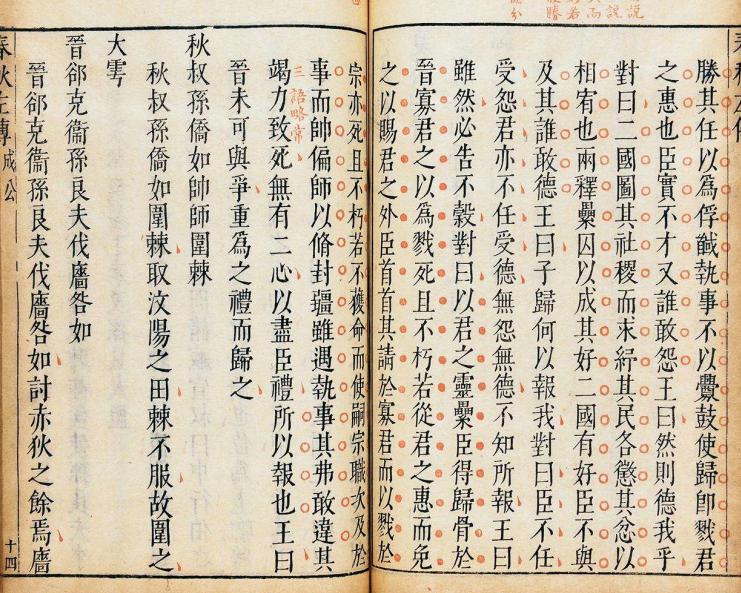 勝其任以爲俘馘執事不以釁鼓使歸卽戮君
之惠也臣實不才又誰敢怨王曰然則德我乎
對曰二國圖其社稷而求紓其民各懲其忿以
相宥也兩釋纍囚以成其好二國有好臣不與
及其誰敢德王曰子歸何以報我對曰臣不任
受怨君亦不任受德無怨無德不知所報王曰
雖然必告不穀對曰以君之靈纍臣得歸骨於
晉寡君之以爲戮死且不朽若從君之惠而免
之以賜君之外臣首首其請於寡君而以戮於
宗亦死且不朽若不獲命而使嗣宗職次及於
三語略常
事而帥偏師以脩封疆雖遇執事其弗敢違其
竭力致死無有二心以盡臣禮所以報也王曰
晉未可與爭重爲之禮而歸之
秋叔孫僑如帥師圍棘
秋叔孫僑如圍棘取汶陽之田棘不服故圍之
大雩
晉郤克衞孫良夫伐廧咎如
晉郤克衞孫良夫伐廧咎如討赤狄之餘焉廧
春秋左傳 成公 十四